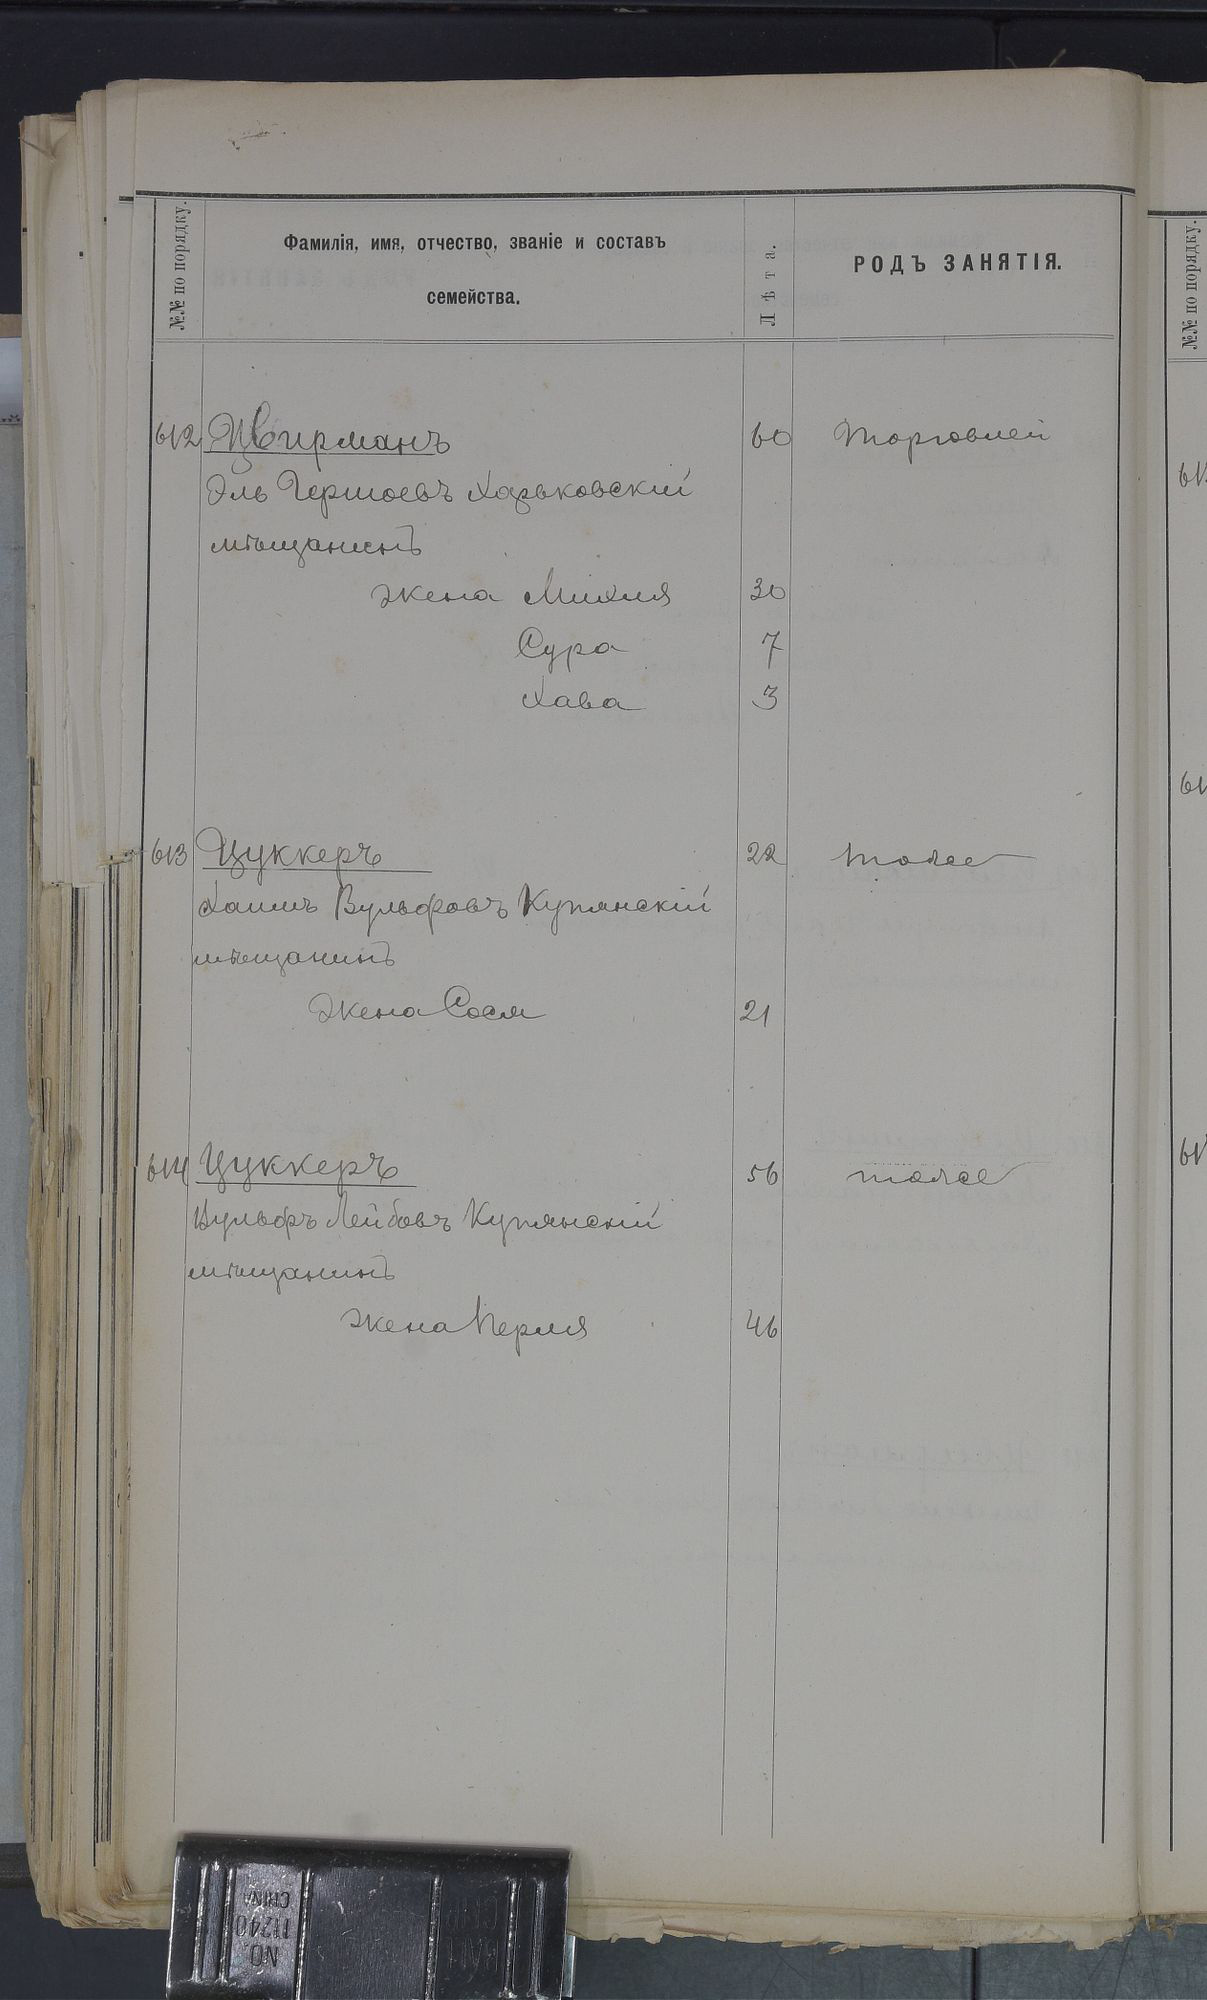 №№ по порядку.
Фамилія, имя, отчество, званіе и составъ
семейства.
Лѣта.
РОДЪ ЗАНЯТІЯ.
№№ по порядку.
612 Цвирманъ 60 Торговлей
Эль Гершоевъ Харьковскій
мѣщанинъ
жена Михля 30
Сура 7
Хава 3
613 Цуккеръ 22 тоже
Хаимъ Вульфовъ Купянскій
мѣщанинъ
Жена Сося 21
614 Цуккеръ 56 тоже
Вульфъ Лейбовъ Купянскій
мѣщанинъ
жена Перля 46
NO.
11240
CHIN